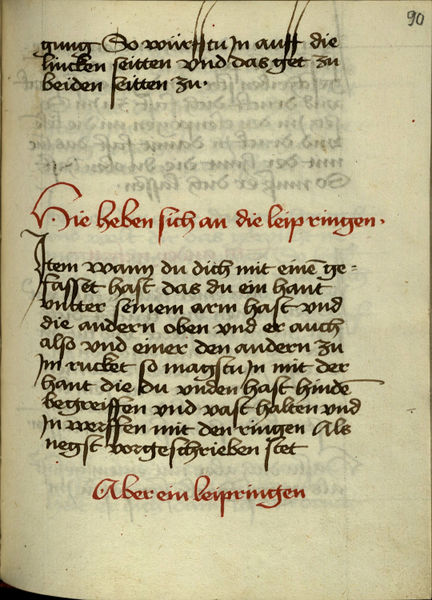 90
gung So würfstu In auff die
lincken seitten vnd das get zu
beiden seitten zu.
Hie heben sich an die leip ringen.
Item wann du dich mit einē ge=
fasset hast das du ein hant
vntter seinem arm hast vnd
die andern oben vnd er auch
also vnd einer den andern zu
Im rucket so magstu In mit der
hant die du vnden hast hinden
begreiffen vnd vast halten vnd
In werffen mit den ringen Als
negst vorgeschrieben stet
Aber ein leipringen